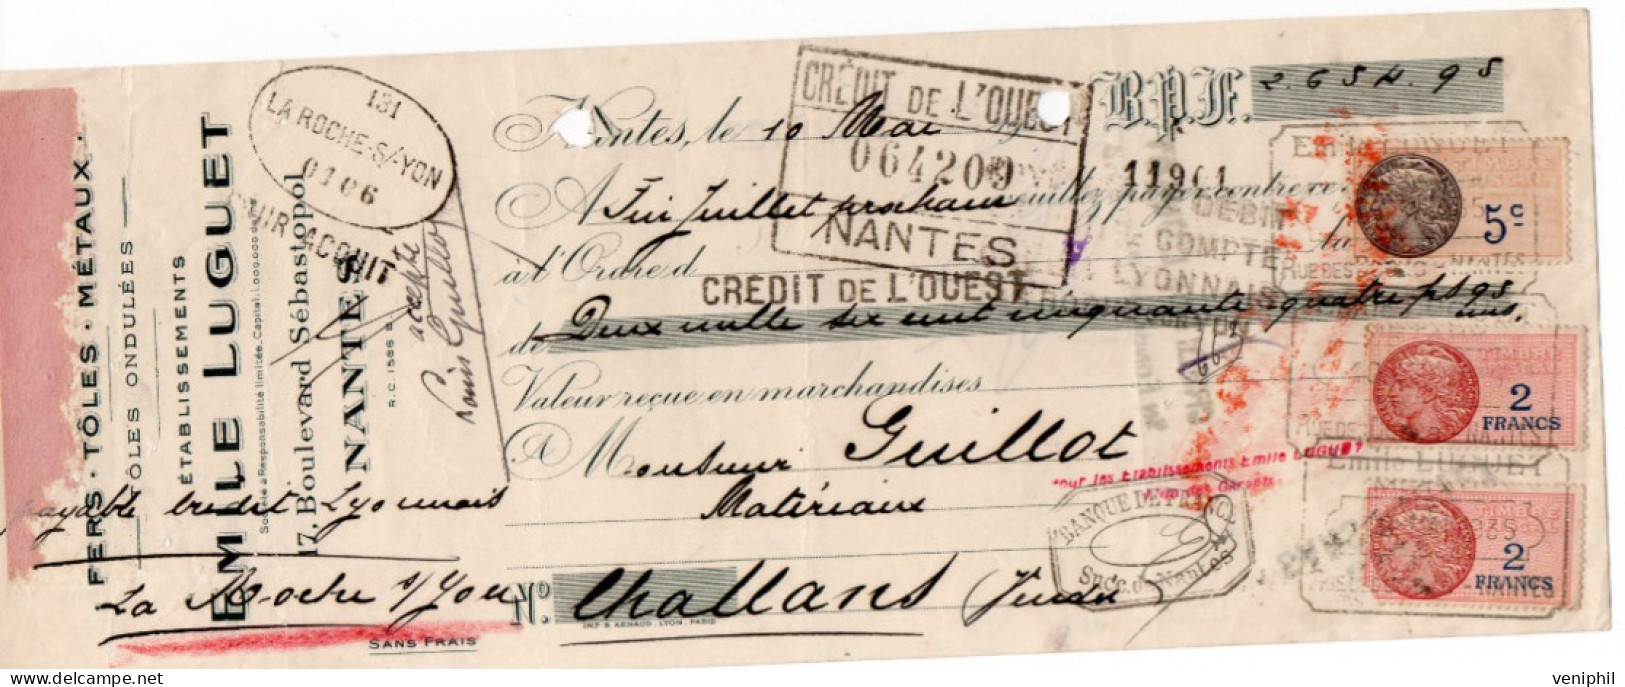 FERS · TÔLES · MÉTAUX
TÔLES ONDULÉES
ÉTABLISSEMENTS
EMILE LUGUET
Société à Responsabilité limitée. Capital: 1.000.000 de
17, Boulevard Sébastopol
NANTES
R.C. 1586 B
131
LA ROCHE-S/-YON
0106
POUR ACQUIT
accepté
Louis Guillot
payable credit Lyonnais
La Roche s/Yon
SANS FRAIS
Nantes, le 10 Mai
B.P.F. 2.654.95
CRÉDIT DE L'OUEST
064209
NANTES
11961
A Fin Juillet prochain veuillez payer contre
à l'Ordre d
CREDIT DE L'OUEST
DEBIT
COMPTE
LYONNAIS
de Deux mille six cent cinquante quatre frs 95
Valeur reçue en marchandises
à Monsieur Guillot
Matériaux
No. Challans (Vendée)
IMP B ARNAUD. LYON. PARIS
Pour les Etablissements Emile LUGUET
BANQUE DE FRANCE
Succ. de Nantes
TIMBRE
5c
TIMBRE
2
FRANCS
Emile LUGUET
2
FRANCS
veniphil